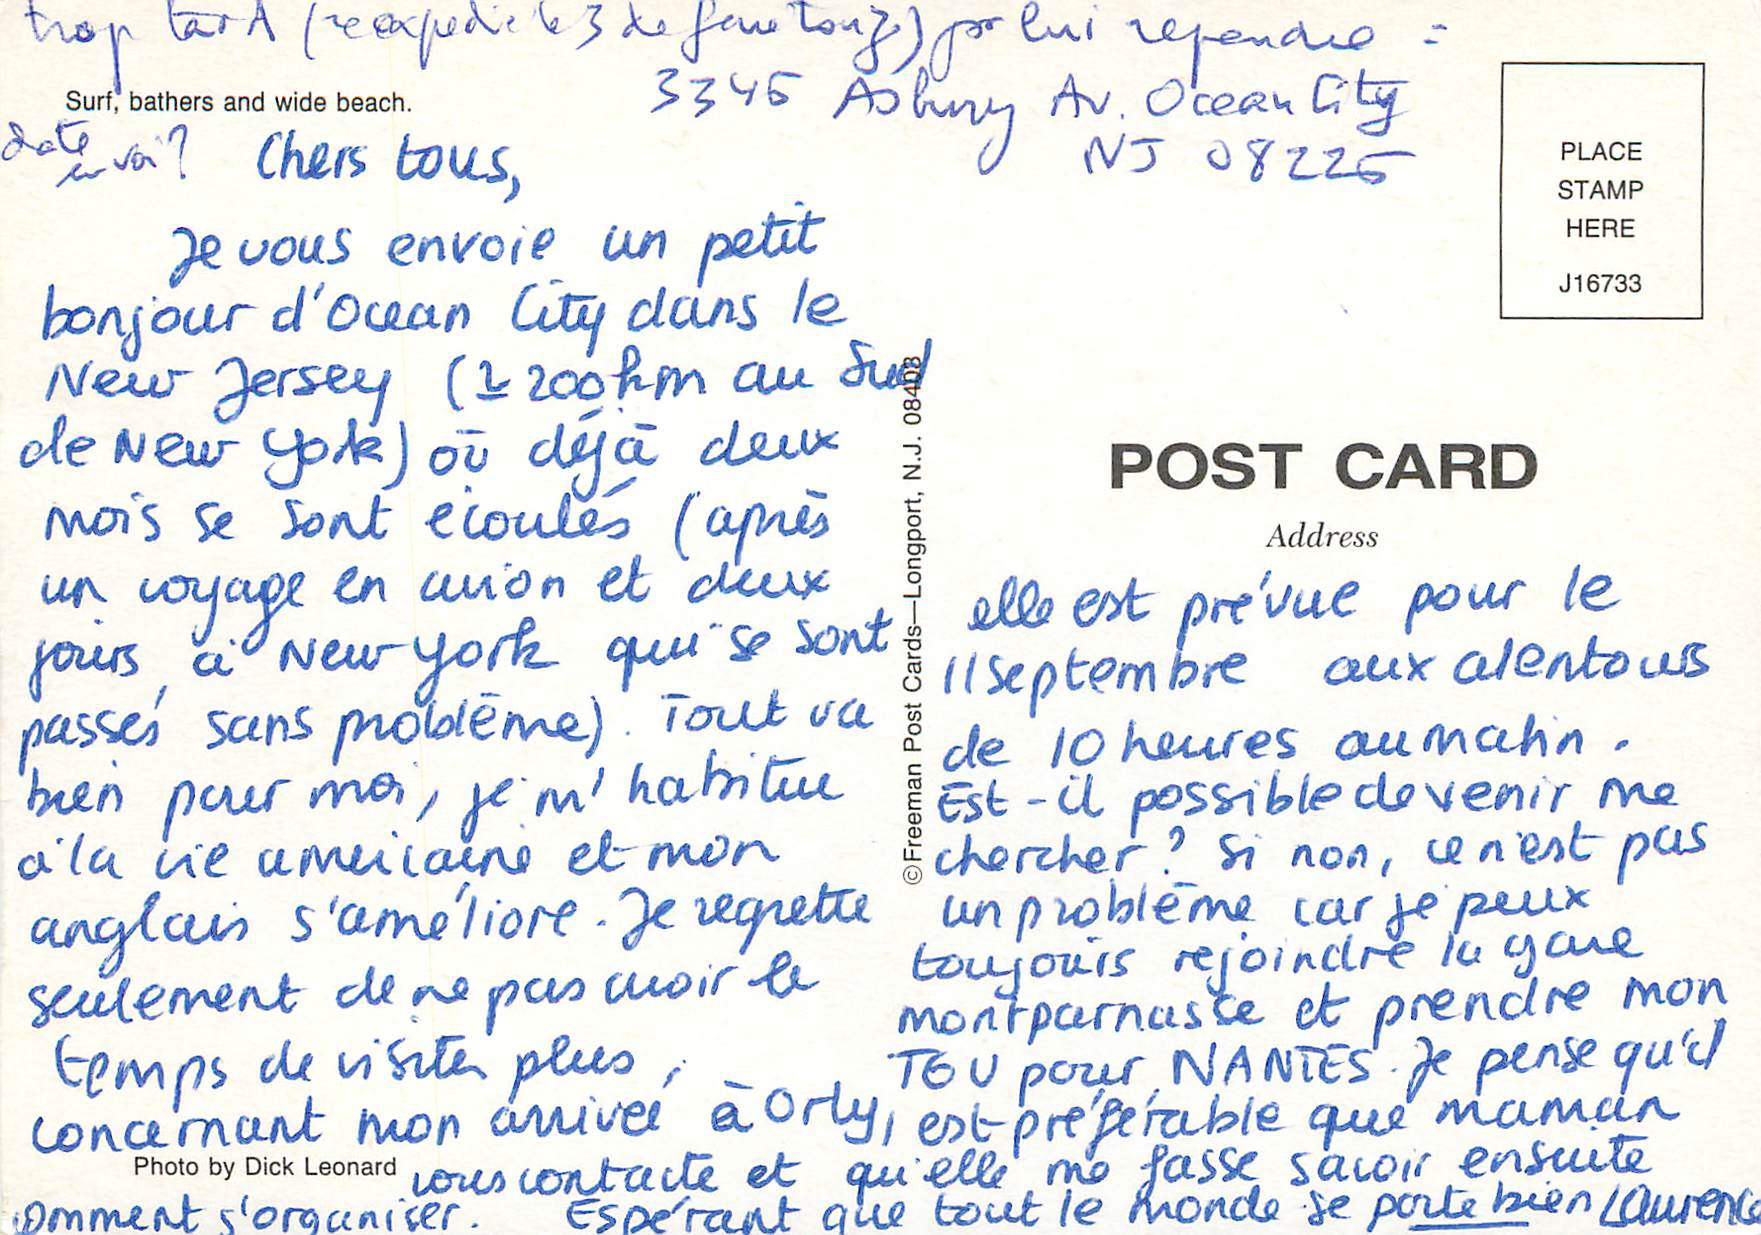 trop tard (réexpédié le 3 de ) pr lui répondre =
3345 Asbury Av. Ocean City
NJ 08226
Surf, bathers and wide beach.
date
envoi?
Chers tous,
Je vous envoie un petit
bonjour d'Ocean City dans le
New Jersey (± 200 km au Sud
de New York) où déjà deux
mois se sont écoulés (après
un voyage en avion et deux
jours à New York qui se sont
passés sans problème). Tout va
bien pour moi, je m'habitue
à la vie américaine et mon
anglais s'améliore. Je regrette
seulement de ne pas avoir le
temps de visiter plus,
concernant mon arrivée à Orly,
elle est prévue pour le
11 septembre aux alentours
de 10 heures au matin.
Est-il possible de venir me
chercher? Si non, ce n'est pas
un problème car je peux
toujours rejoindre la gare
montparnasse et prendre mon
TGV pour NANTES. Je pense qu'il
est préférable que maman
vous contacte et qu'elle me fasse savoir ensuite
comment s'organiser. Espérant que tout le monde se porte bien Laurence
PLACE
STAMP
HERE
J16733
POST CARD
Address
©Freeman Post Cards—Longport, N.J. 08403
Photo by Dick Leonard